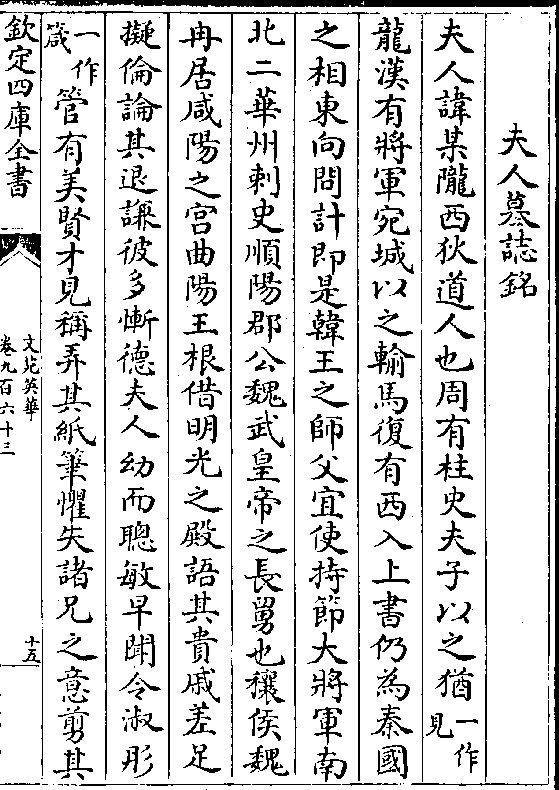 夫人墓誌銘
夫人諱某隴西狄道人也周有柱史夫子以之猶一作見
龍漢有將軍宛城以之輸馬復有西入上書仍為秦國
之相東向問計即是韓王之師父宜使持節大將軍南
北二華州刺史順陽郡公魏武皇帝之長舅也穰侯魏
冉居咸陽之宮曲陽王根借明光之殿語其貴戚差足
擬倫論其退謙彼多慚德夫人幼而聰敏早閑令淑彤
一作箴管有美賢才見稱弄其紙筆懼失諸兄之意剪其
欽定四庫全書
文苑英華
卷九百六十三
十五